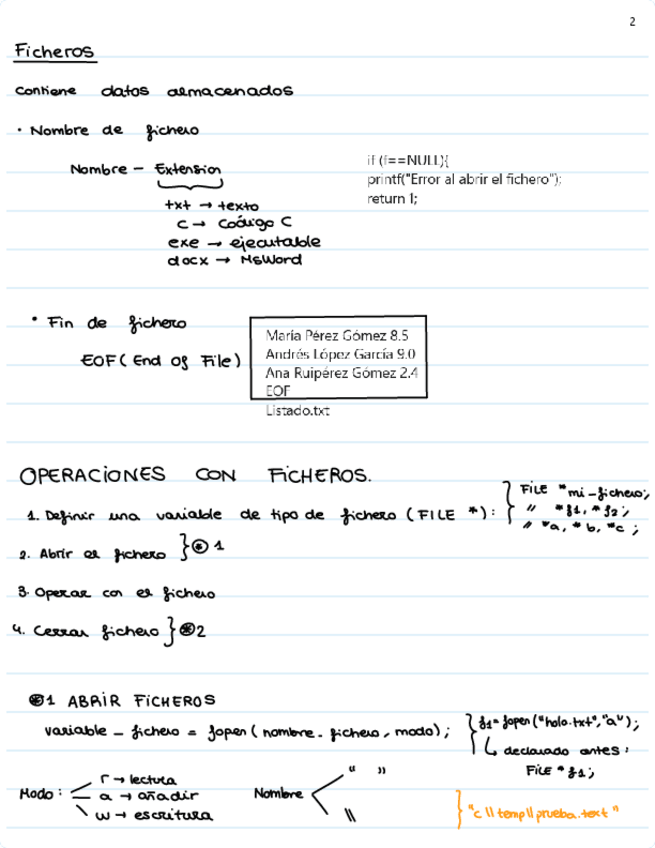 2
Ficheros
Contiene datos almacenados
· Nombre de fichero
Nombre - Extension
txt → texto
c → código C
exe → ejecutable
docx → MsWord
if (f==NULL){
printf("Error al abrir el fichero");
return 1;
· Fin de fichero
EOF (End Of File)
María Pérez Gómez 8.5
Andrés López García 9.0
Ana Ruipérez Gómez 2.4
EOF
Listado.txt
OPERACIONES CON FICHEROS.
1. Definir una variable de tipo de fichero (FILE *): } FILE *mi-fichero;
" *f1, *f2;
" *a, *b, *c ;
2. Abrir el fichero } ⊛ 1
3. Operar con el fichero
4. Cerrar fichero } ⊛2
⊛1 ABRIR FICHEROS
variable - fichero = fopen ( nombre - fichero, modo);
} f1= fopen ("hola.txt","a");
↳ declarado antes:
FILE * f1;
Modo:
r → lectura
a → añadir
w → escritura
Nombre
" "
\\
} "c \\ temp \\ prueba.text "